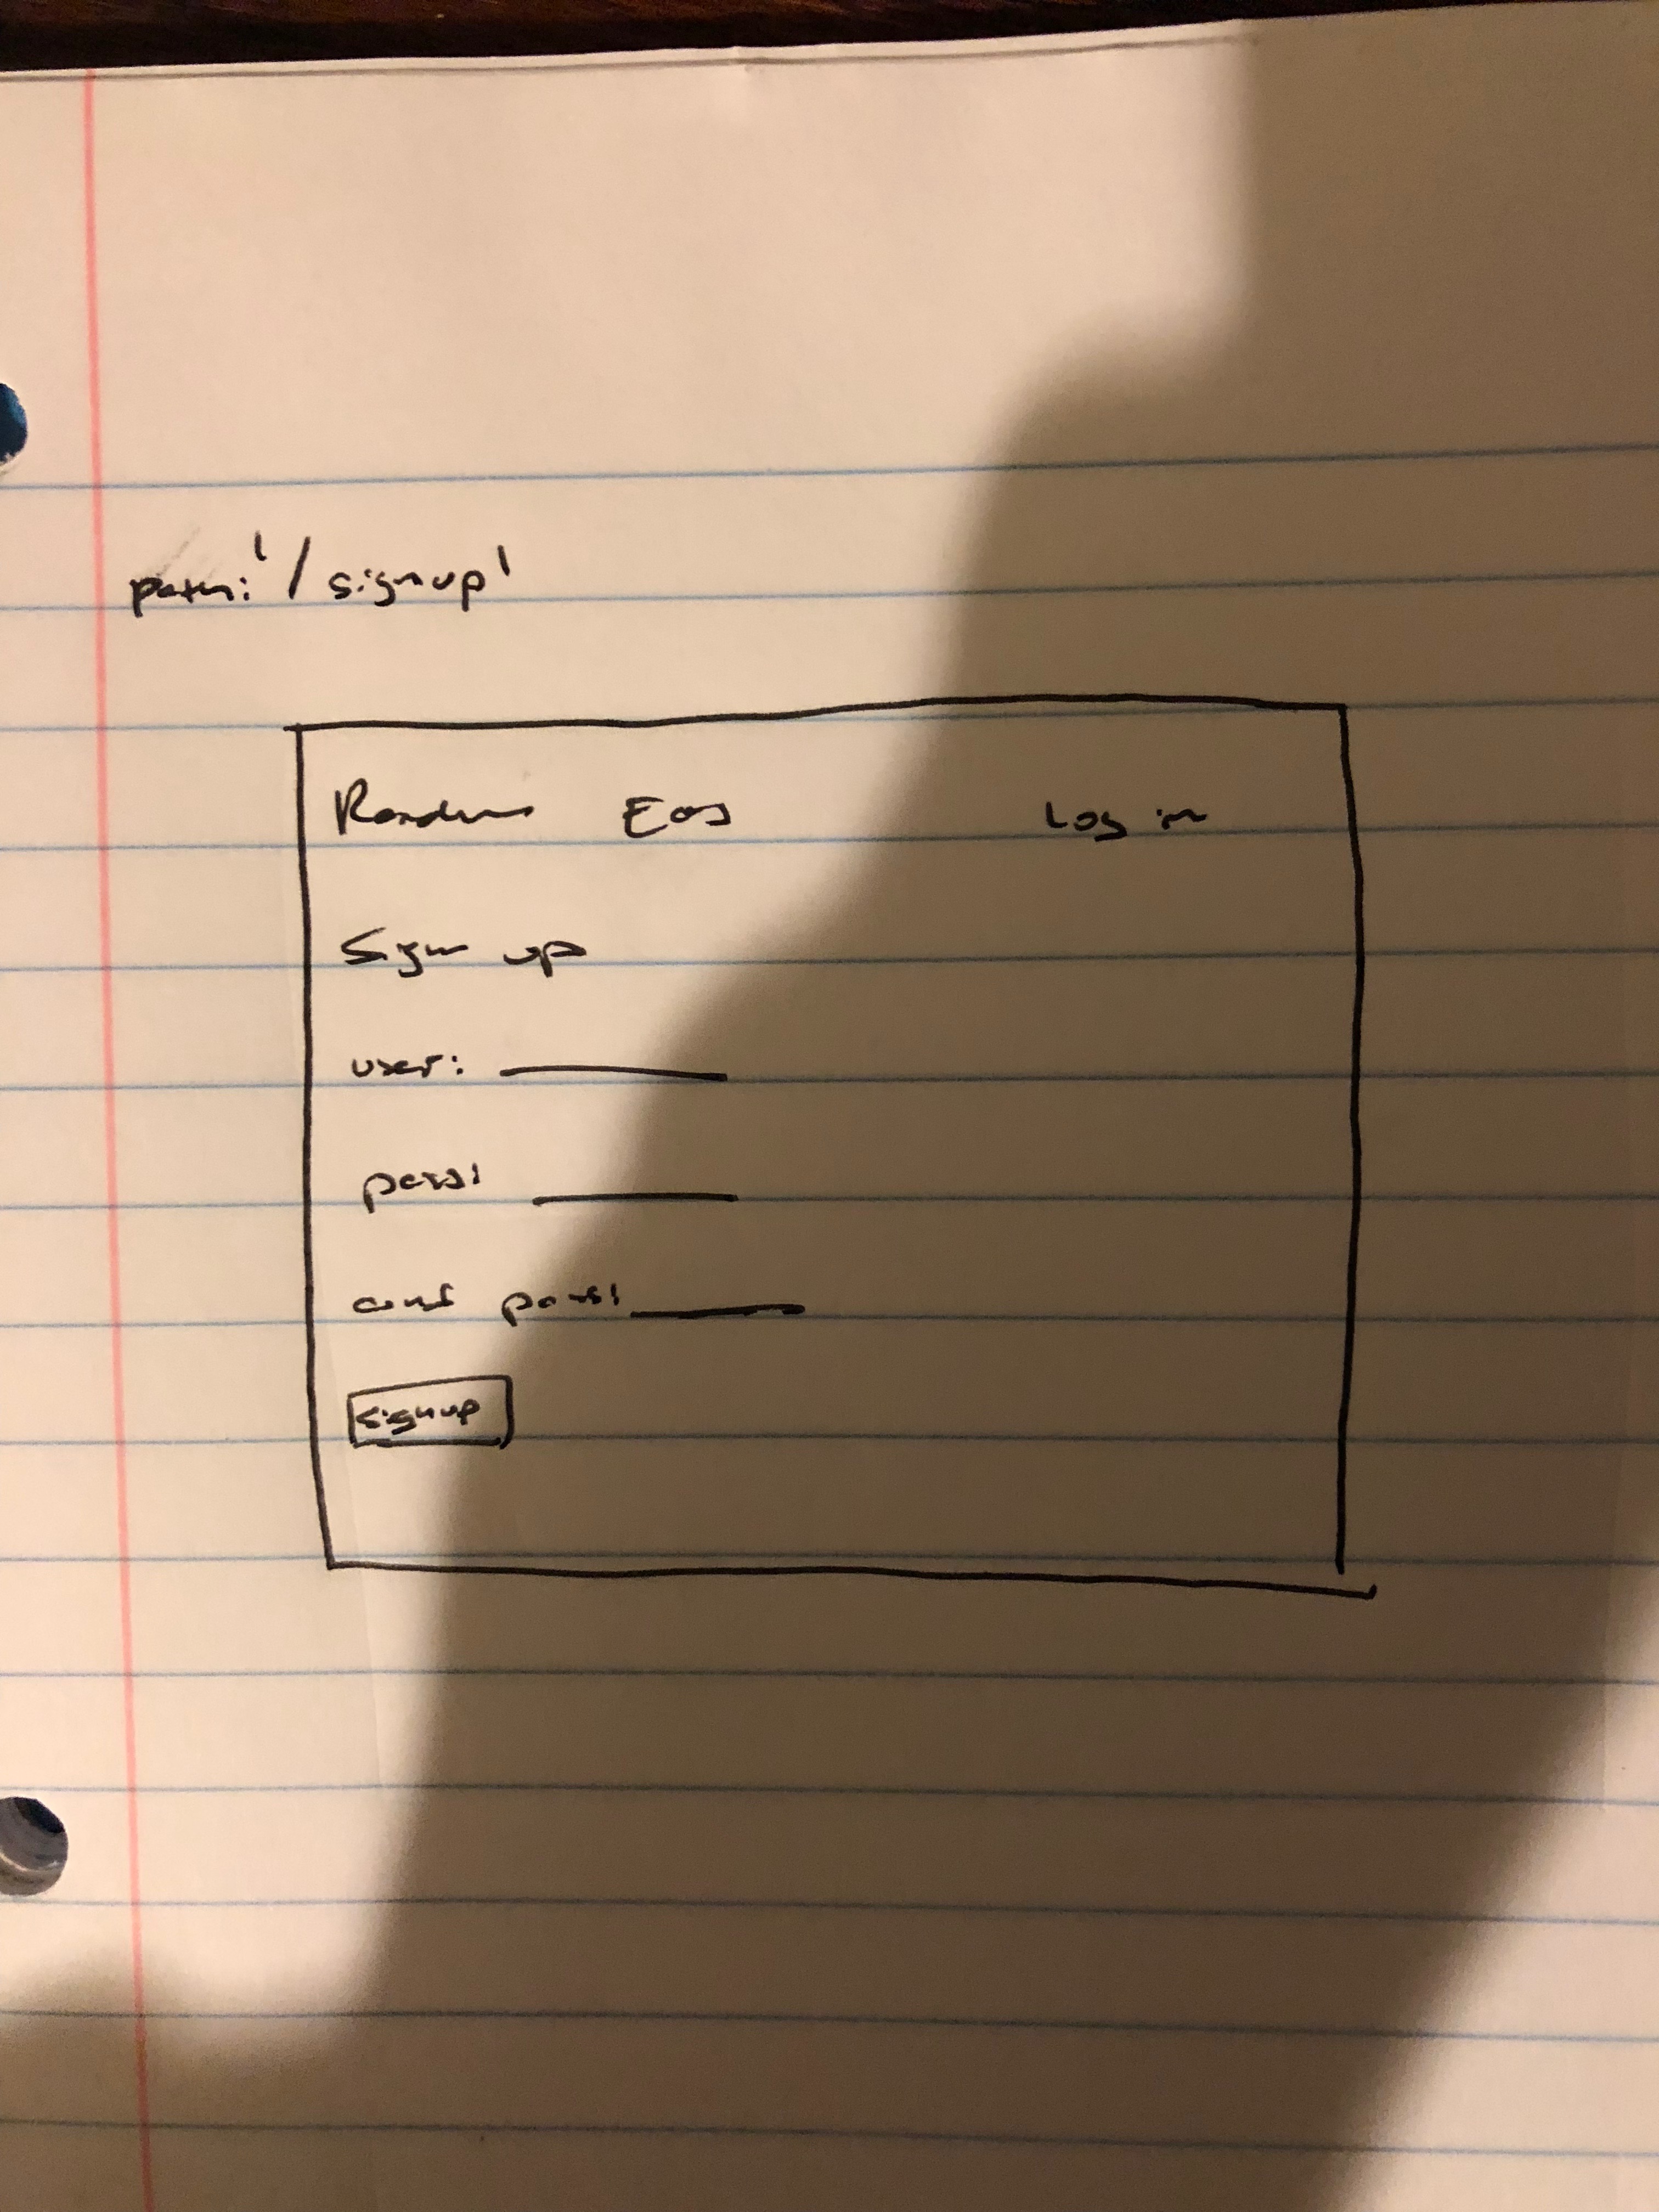 path: '/signup'
Random Eas Log in
Sign up
user:
pass:
conf pass:
signup